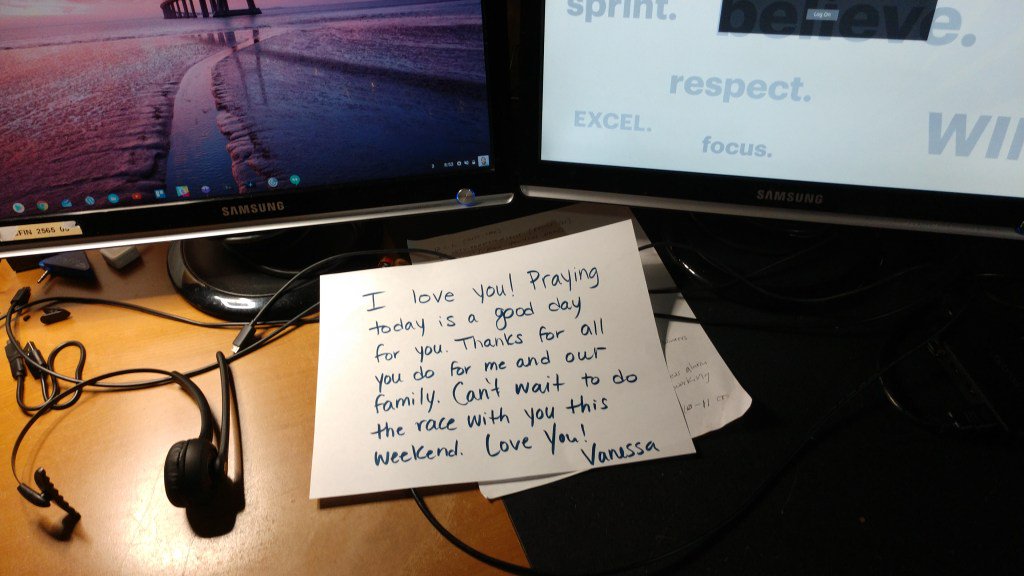 sprint.
believe.
Log On
respect.
EXCEL.
focus.
SAMSUNG
SAMSUNG
2565
I love you! Praying
today is a good day
for you. Thanks for all
you do for me and our
family. Can't wait to do
the race with you this
weekend. Love You!
Vanessa
working